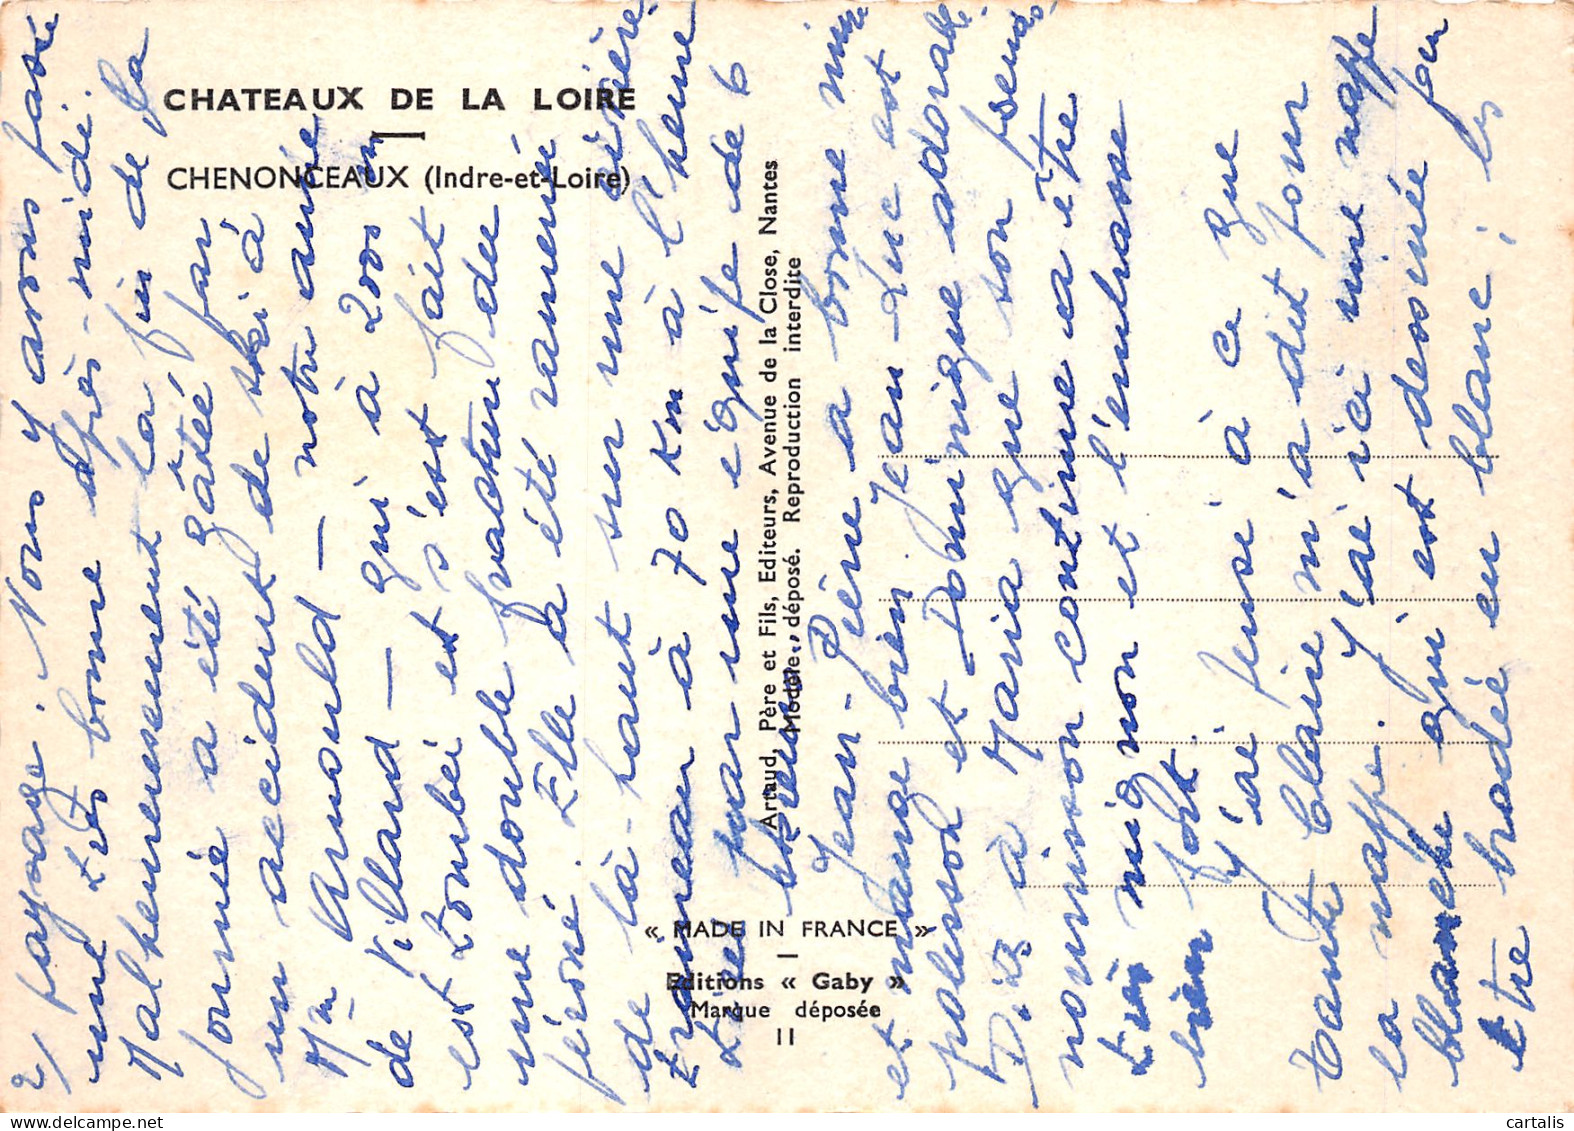 CHATEAUX DE LA LOIRE
CHENONCEAUX (Indre-et-Loire)
Artaud, Père et Fils, Editeurs, Avenue de la Close, Nantes
Modèle déposé. Reproduction interdite
« MADE IN FRANCE »
Editions « Gaby »
Marque déposée
11
2/ paysage. Nous y avons passé
une très bonne après-midi.
Malheureusement la fin de la
journée a été gâtée par
un accident de ski à
Mm Arnould - notre amie
de Villard - qui à 2000 m
est tombée et s'est fait
une double fracture du
péroné. Elle a été ramenée
de là-haut sur une civière-
traineau à 70 km à l'heure
par une équipe de 6
Jean-Pierre a bonne mine
et mange bien. Jean-Luc est
polisson et Dominique adorable.
Dis à Maria que son
nourrisson continue a être
mignon et l'embrasse
bien fort.
J'ai pensé à ce que
tante Claire m'a dit pour
la nappe. J'ai ici une nappe
blanche qui est dessinée pour
être brodée en blanc ; les
cartalis